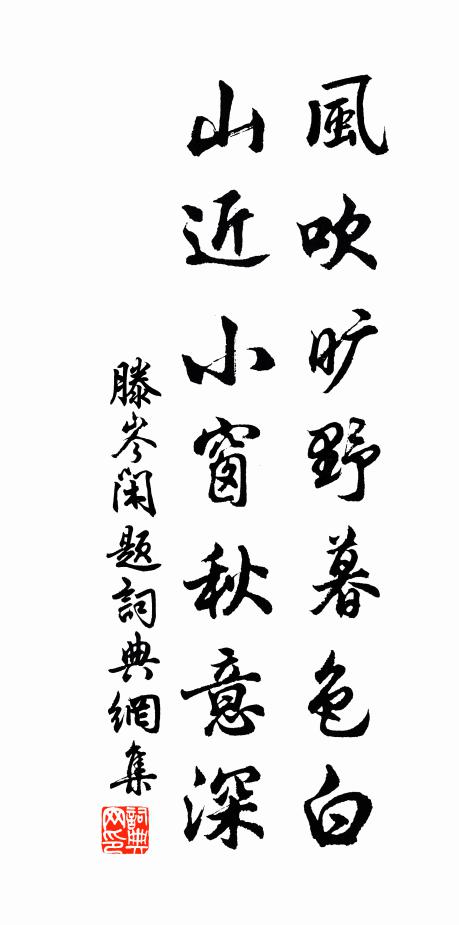 風吹旷野暮色白
山近小窗秋意深
滕岑闲题詞典網集
詞典网印